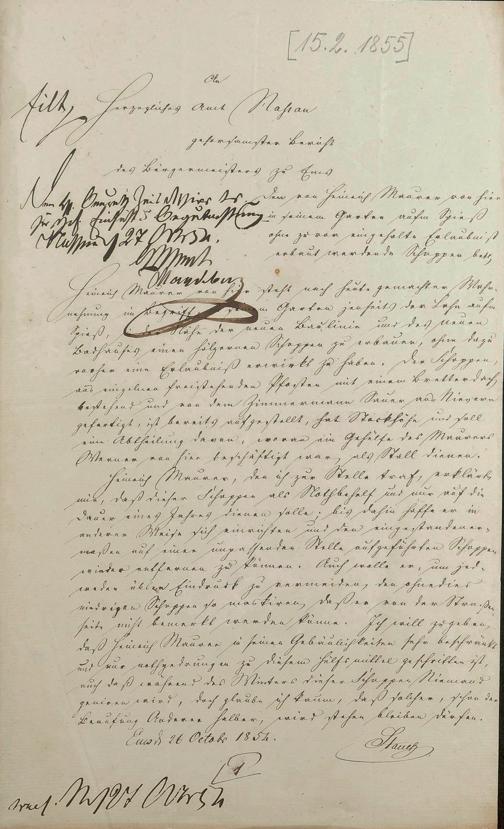 [15.2.1855]
An
Herzogliches Amt Nassau
gehorsamster Bericht
des Bürgermeisters zu Ems
den von Heinrich Maurer von hier
in seinem Garten aufm Spieß
ohne zu vor eingeholte Erlaubniß
erbaut werdende Schoppen betr.
Nassau 27 Octbr 54.
Heinrich Maurer von hier steht nach heute gemachter Wahr-
nehmung im Begriff, Garten jenseits der Lahn aufm
Spieß, Nähe der neuen Baulinie und des neuen
Badhauses einen hölzernen Schoppen zu erbauen, ohne dazu
vorher eine Erlaubniß erwirkt zu haben. Der Schoppen,
aus einzelnen freistehenden Pfosten mit einem Bretterdach
bestehend und von dem Zimmermann Sauer aus Nievern
gefertigt, ist bereits aufgestellt, hat Stockhöhe und soll
eine Abtheilung davon, woran ein Gehülfe des Maurers
Werner von hier beschäftigt war, als Stall dienen.
Heinrich Maurer, den ich zur Stelle traf, erklärte
mir, daß dieser Schoppen als Nothbehelf und nur auf die
Dauer eines Jahres dienen solle; bis dahin hoffe er in
anderer Weise sich einrichten und den eingestandener-
maßen auf einer unpassenden Stelle aufgeführten Schoppen
wieder entfernen zu können. Auch wolle er, um jed-
weden üblen Eindruck zu vermeiden, den ohnedies
niedrigen Schoppen so maskiren, daß er von der Straßen-
seite nicht bemerkt werden könne. Ich will zugeben,
daß Heinrich Maurer in seinen Gebäulichkeiten sehr beschränkt
und nur nothgedrungen zu diesem Hülfsmittel geschritten ist,
auch daß während des Winters dieser Schoppen Niemand
geniren wird, doch glaube ich kaum, daß solcher, schon der
Berufung Anderer halber, wird stehen bleiben dürfen.
Ems d. 26 Octobr 1854.
1